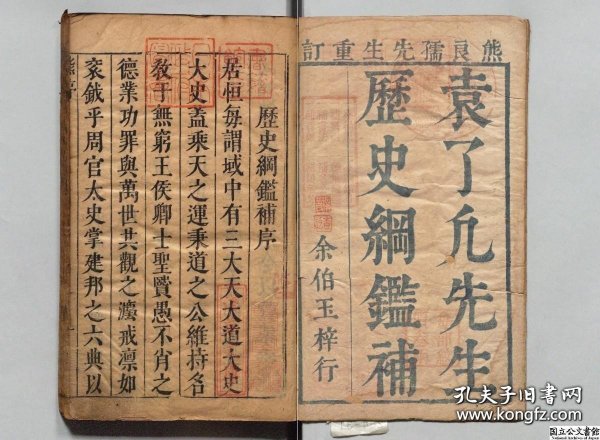 熊良孺先生重訂
袁了凡先生
歷史綱鑑補
余伯玉梓行
歷史綱鑑補序
居恒每謂域中有三大天大道大史
大史蓋乘天之運秉道之公維持名
教于無窮王侯卿士聖賢愚不肖之
德業功罪與萬世共觀之灋戒凛如
衮鉞乎周官太史掌建邦之六典以
孔夫子旧书网
www.kongfz.com
国立公文書館
National Archives of Japan